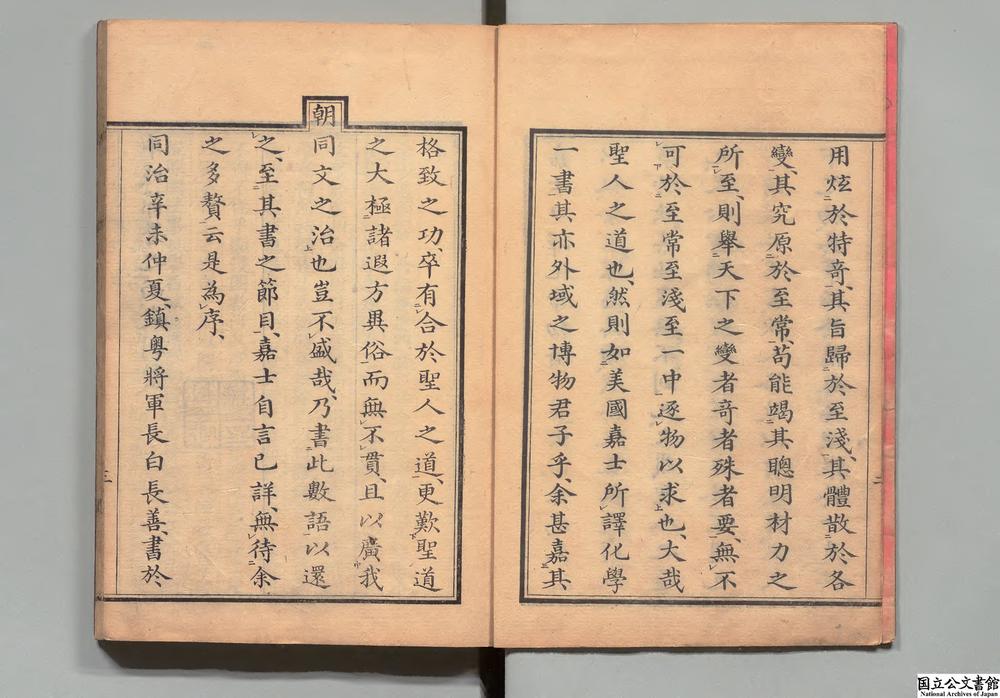 用炫於特奇、其旨歸於至淺、其體散於各
變、其究原於至常、苟能竭其聰明材力之
所至、則舉天下之變者奇者殊者要、無不
可於至常至淺至一中逐物以求也、大哉
聖人之道也、然則如美國嘉士所譯化學
一書其亦外域之博物君子乎、余甚嘉其
二
格致之功、卒有合於聖人之道、更歎聖道
之大極諸遐方異俗而無不貫、且以廣我
朝同文之治也豈不盛哉、乃書此數語以還
之、至其書之節目、嘉士自言已詳、無待余
之多贅云是為序、
同治辛未仲夏、鎮粵將軍長白長善、書於
三
国立公文書館
National Archives of Japan